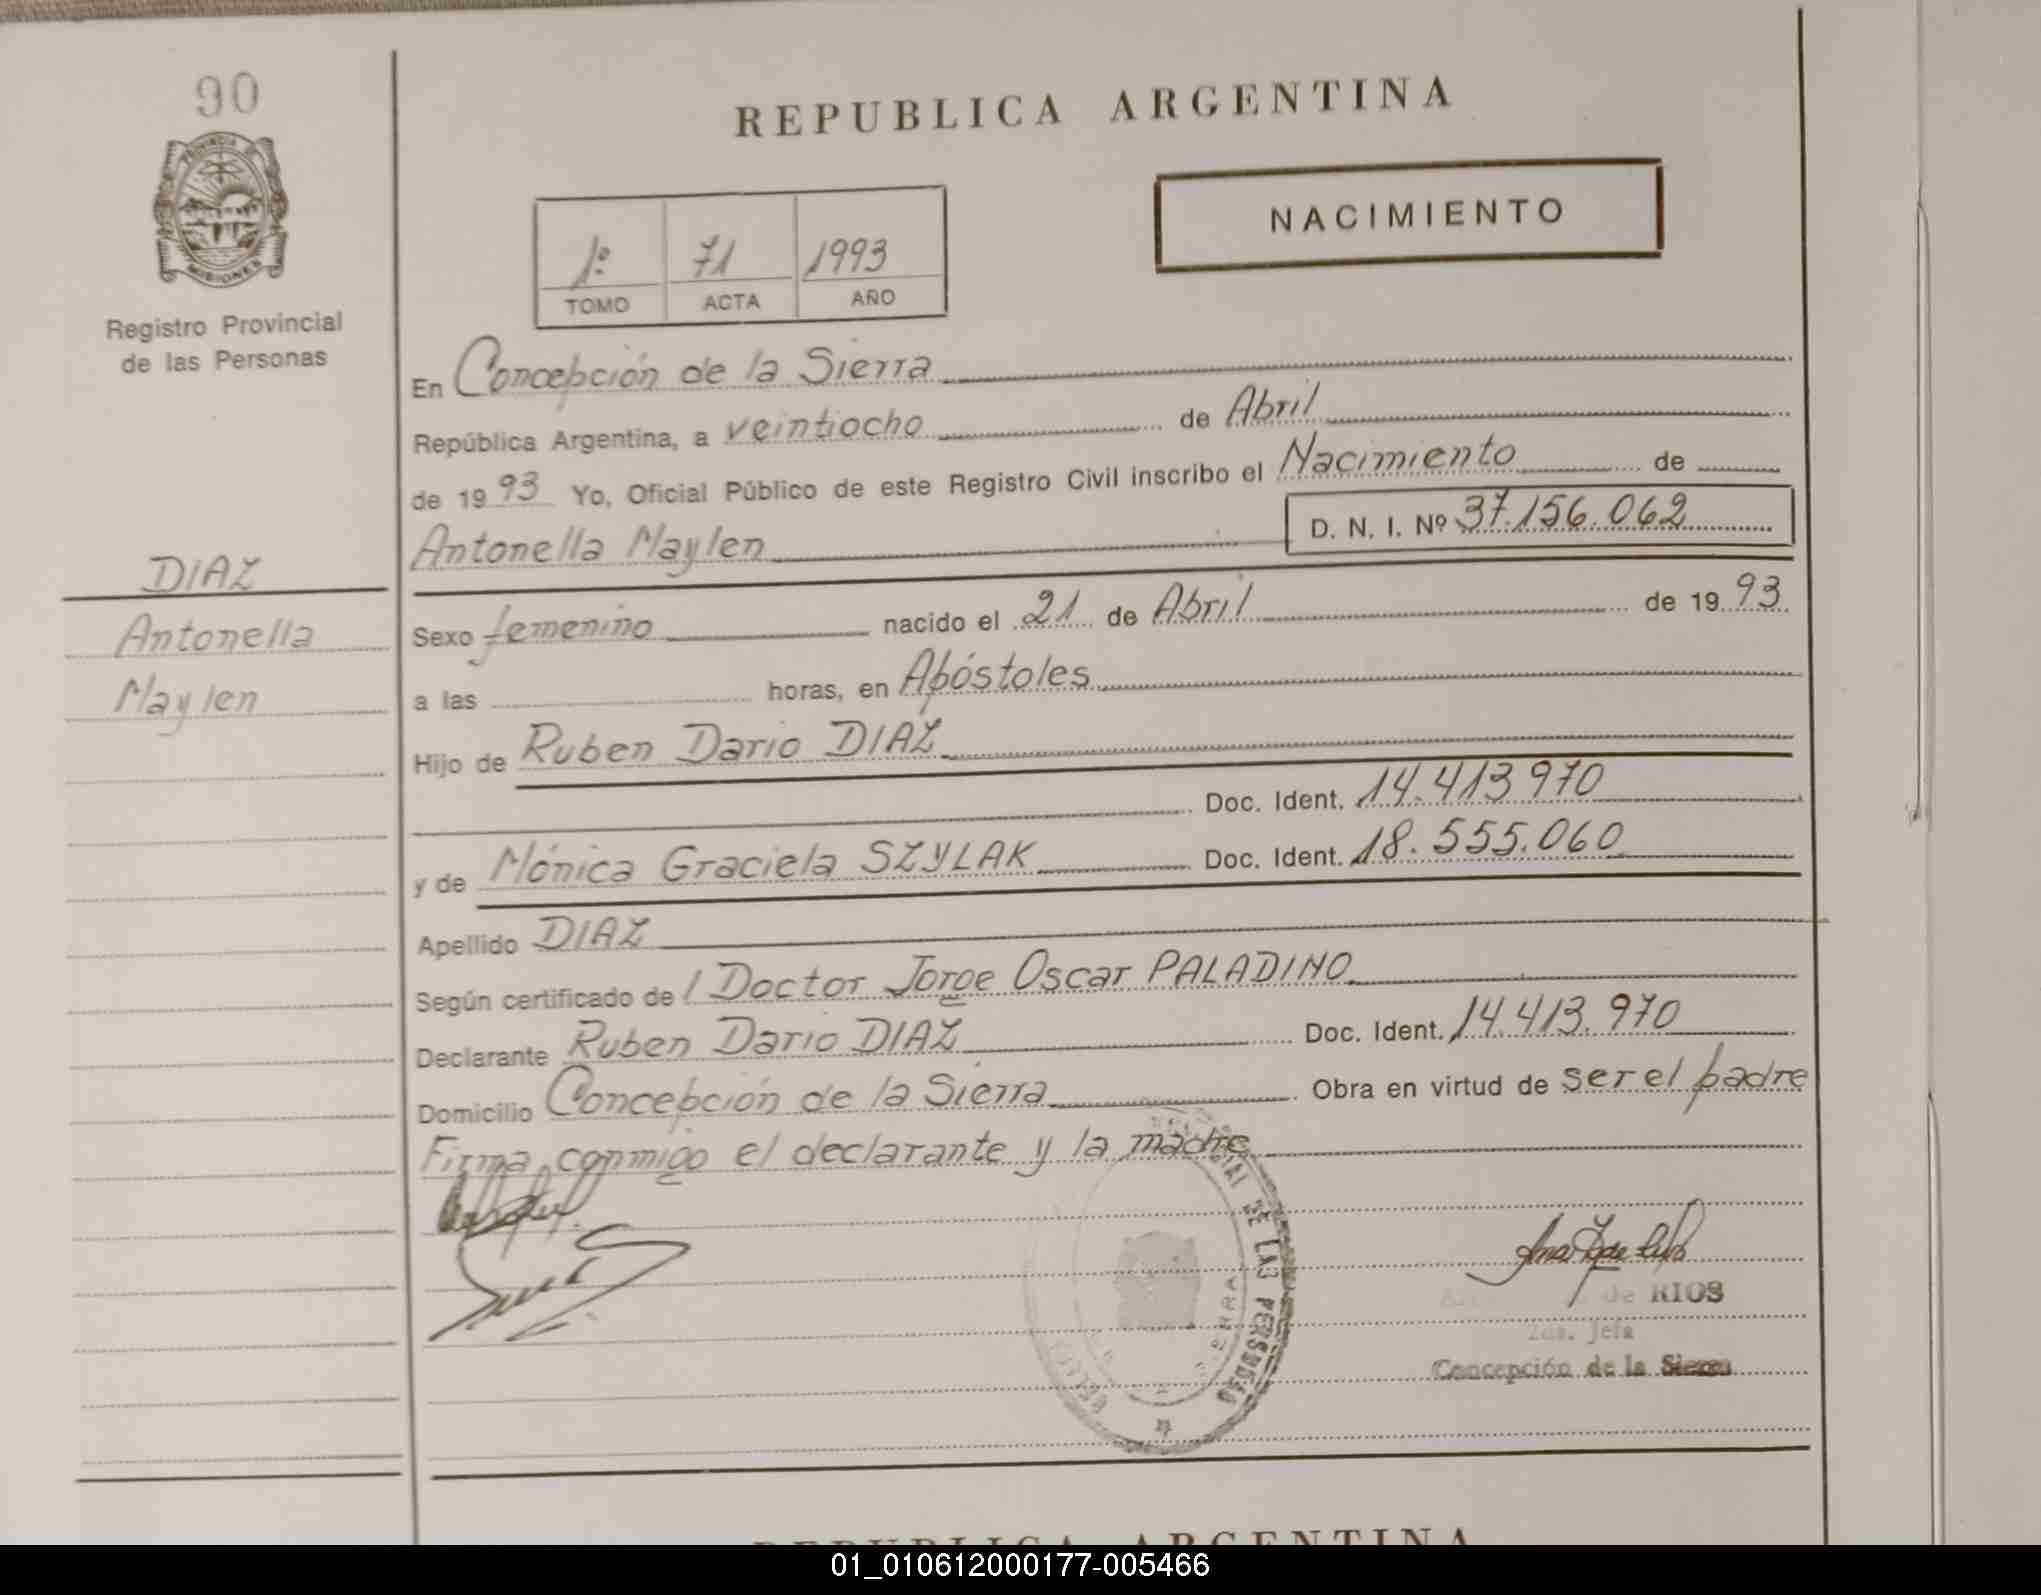 90
REPUBLICA ARGENTINA
NACIMIENTO
PROVINCIA DE
MISIONES
1º 71 1993
TOMO ACTA AÑO
Registro Provincial
de las Personas
En Concepción de la Sierra
República Argentina, a veintiocho de Abril
de 1993 Yo, Oficial Público de este Registro Civil inscribo el Nacimiento de
Antonella Maylen D. N. I. Nº 37.156.062
DIAZ
Antonella
Maylen
Sexo femenino nacido el 21 de Abril de 1993
a las horas, en Apóstoles
Hijo de Ruben Dario DIAZ
Doc. Ident. 14.413.970
y de Mónica Graciela SZYLAK Doc. Ident. 18.555.060
Apellido DIAZ
Según certificado de l Doctor Jorge Oscar PALADINO
Declarante Ruben Dario DIAZ Doc. Ident. 14.413.970
Domicilio Concepción de la Sierra Obra en virtud de ser el padre
Firma conmigo el declarante y la madre
DE LAS PERSONAS
de RIOS
2da. Jefa
Concepción de la Sierra
REPUBLICA ARGENTINA
01_010612000177-005466